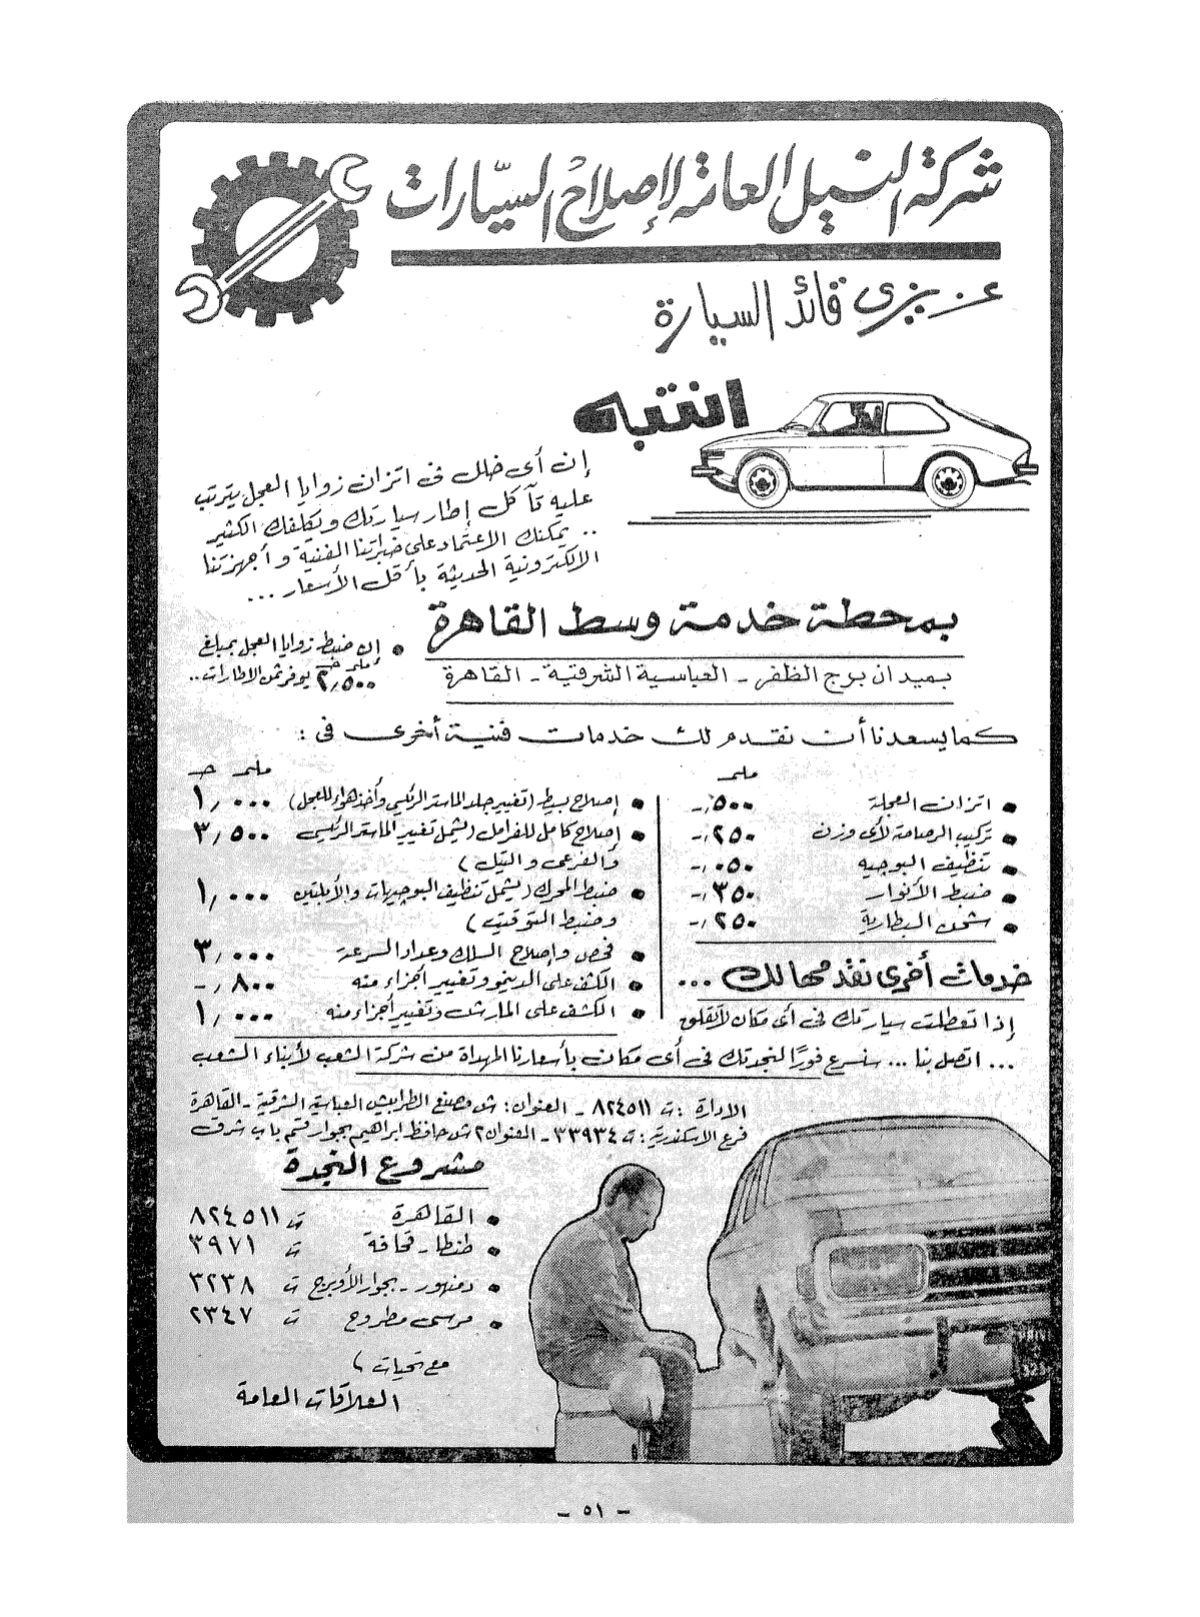 شركة النيل العامة لإصلاح السيّارات
عزيزى قائد السيارة
انتبه
إن أى خلل فى اتزان زوايا العجل يترتب
عليه تآكل إطار سيارتك ويكلفك الكثير
.. يمكنك الاعتماد على خبراتنا الفنية وأجهزتنا
الالكترونية الحديثة بأقل الأسعار ...
بمحطة خدمة وسط القاهرة
بميدان برج الظفر - العباسية الشرقية - القاهرة
• إن ضبط زوايا العجل بمبلغ
مليم جـ
٢,٥٠٠ يوفر ثمن الإطارات ..
كما يسعدنا أن نقدم لك خدمات فنية أخرى فى :
مليم
• اتزان العجلة ٥٠٠,-
• تركيب الرصاصة لأى وزن ٢٥٠,-
• تنظيف البوجيه ٠٥٠,-
• ضبط الأنوار ٣٥٠,-
• شحن البطارية ٢٥٠,-
مليم جـ
• إصلاح بسيط (تغيير جلد الماستر الرئيسى وأخذ هواء للعجل) ١,٠٠٠
• إصلاح كامل للفرامل (يشمل تغيير الماستر الرئيسى ٣,٥٠٠
والفرعى والتيل)
• ضبط المحرك (يشمل تنظيف البوجيهات والأبلتين ١,٠٠٠
وضبط التوقيت)
• فحص وإصلاح السلك وعداد السرعة ٣,٠٠٠
• الكشف على الدينمو وتغيير أجزاء منه ٨٠٠,-
• الكشف على المارش وتغيير أجزاء منه ١,٠٠٠
خدمات أخرى نقدمها لك ...
إذا تعطلت سيارتك فى أى مكان لا تقلق
... اتصل بنا ... سنسرع فورًا لنجدتك فى أى مكان بأسعارنا المهداة من شركة الشعب لأبناء الشعب
الادارة : ت ٨٢٤٥١١ - العنوان : ش مصنع الطرابيش العباسية الشرقية - القاهرة
فرع الاسكندرية : ت ٣٣٩٣٤ - العنوان ٢ ش حافظ ابراهيم بجوار قسم باب شرق
مشروع النجدة
• القاهرة ت ٨٢٤٥١١
• طنطا - قحافة ت ٣٩٧١
• دمنهور - بجوار الأوبرج ت ٣٢٣٨
• مرسى مطروح ت ٢٣٤٧
مع تحيات ،
العلاقات العامة
- ٥١ -